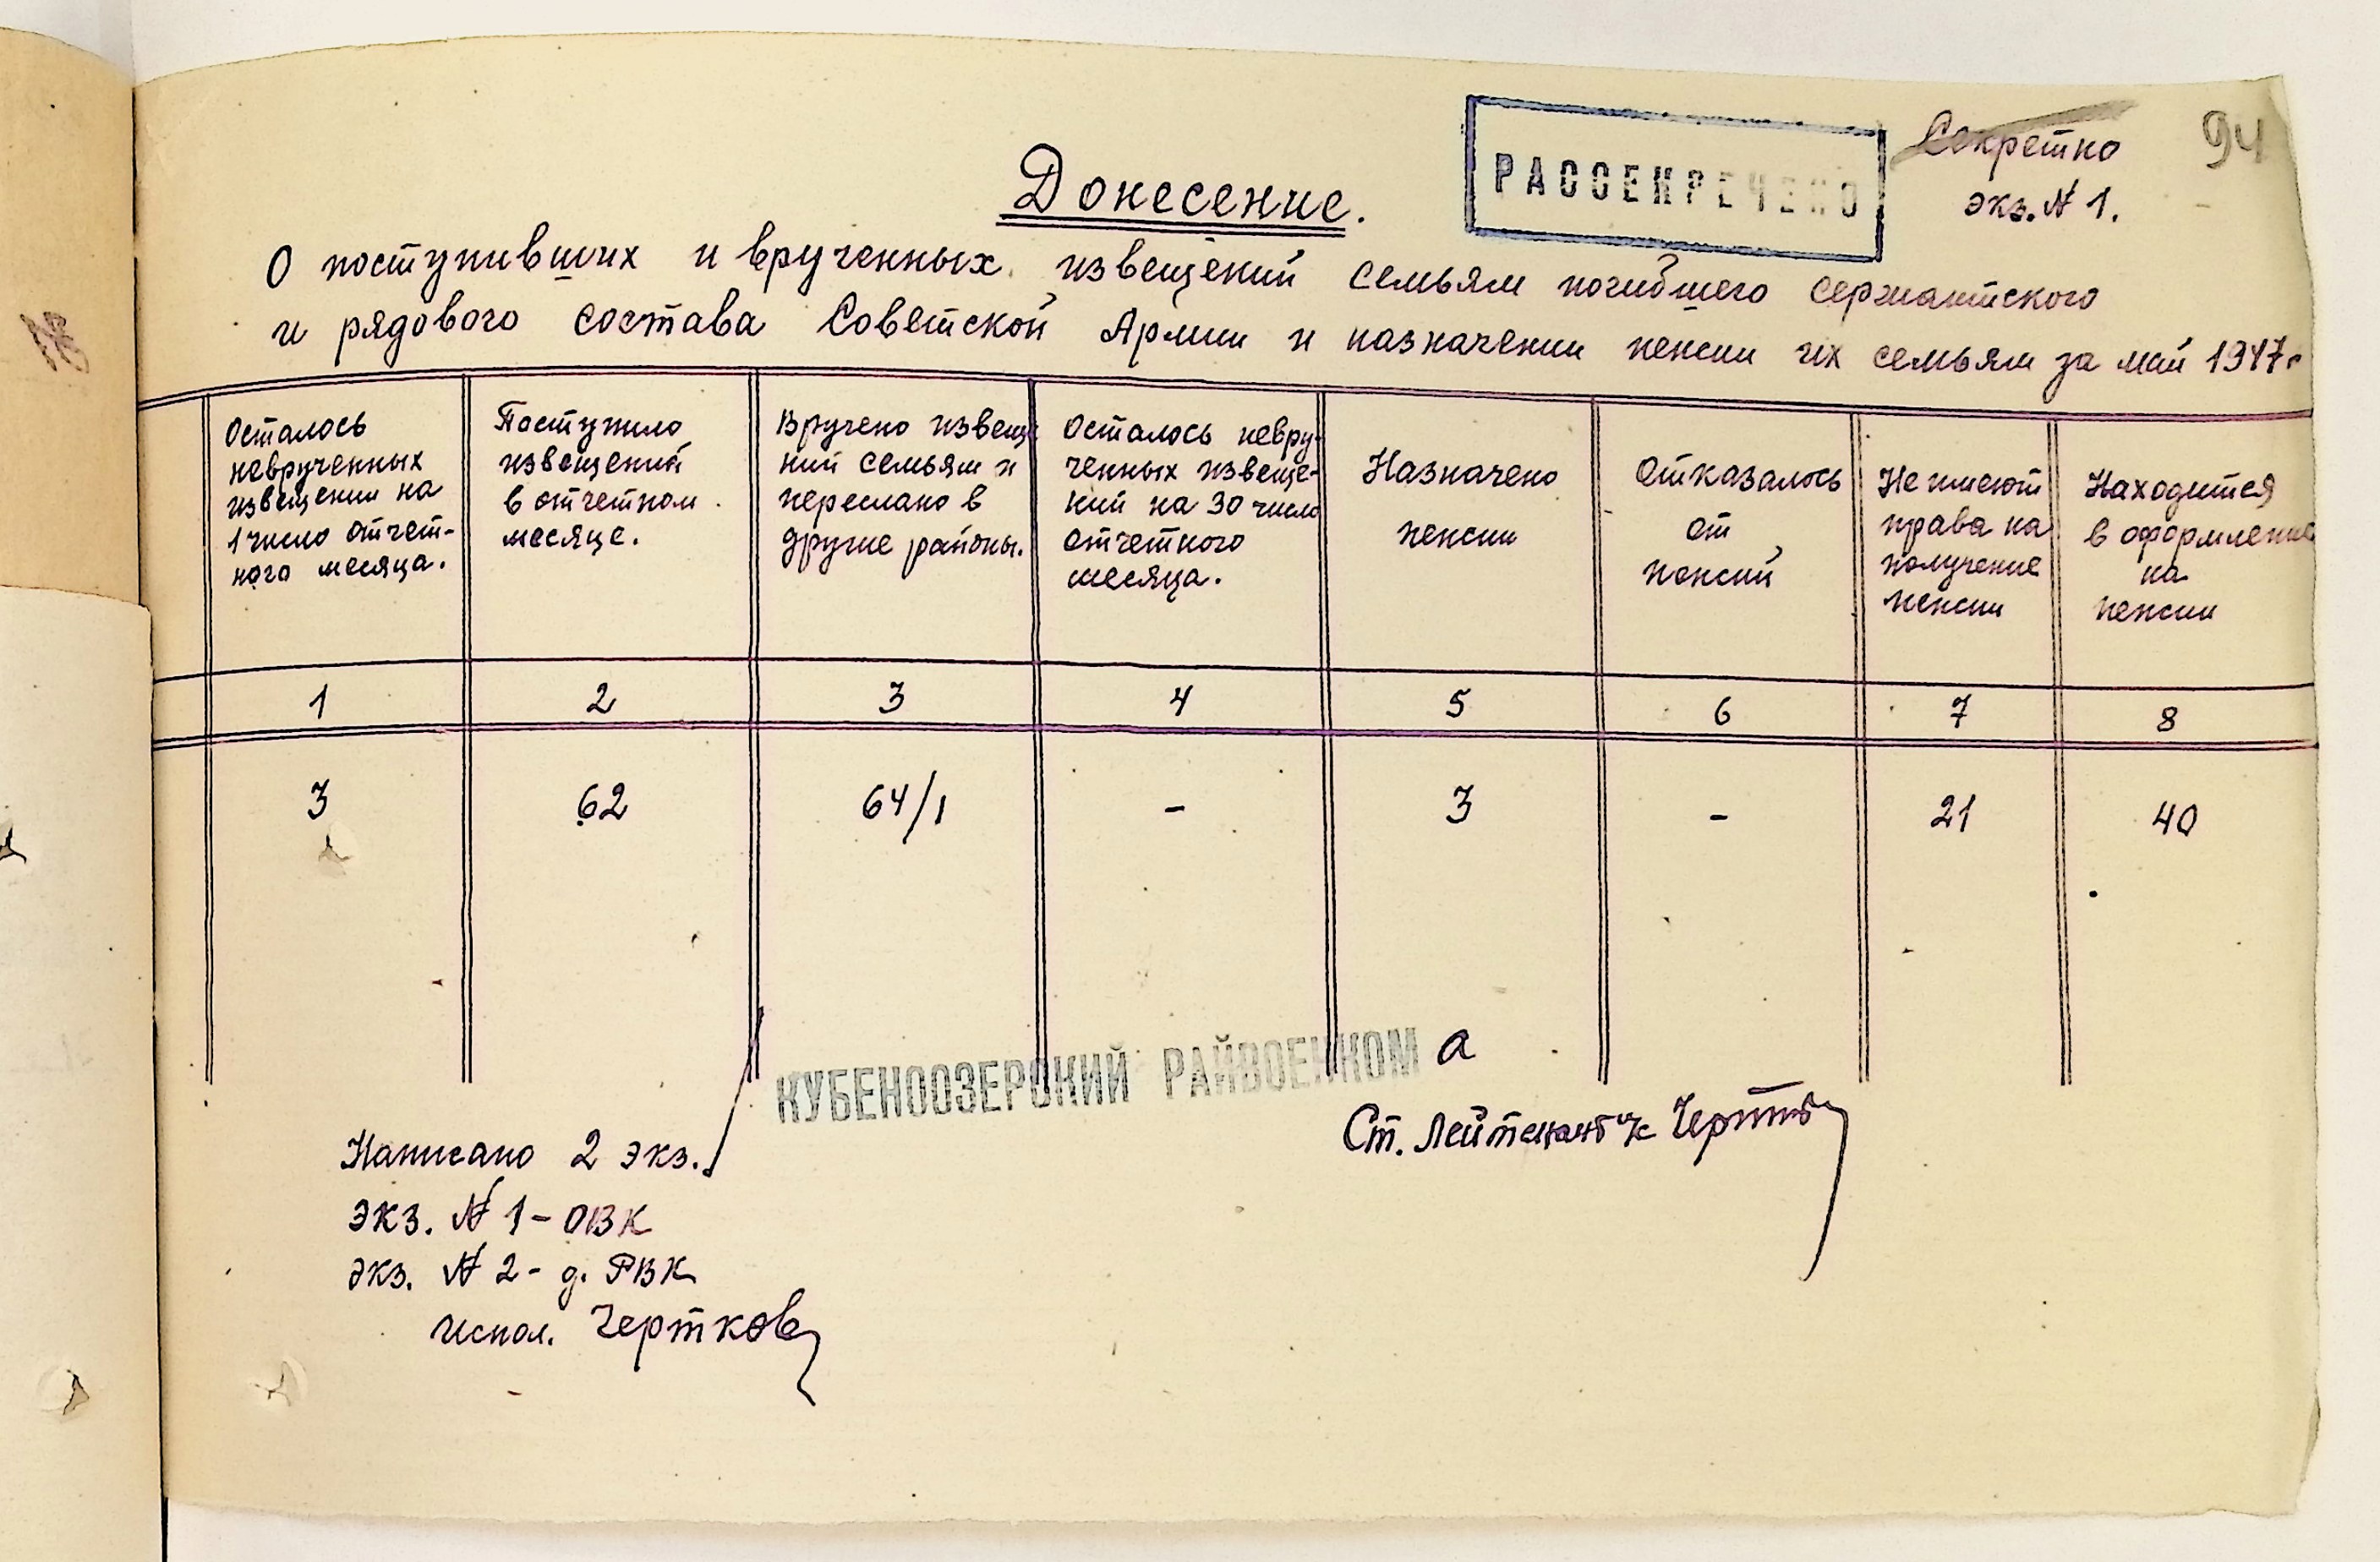 Секретно
94
экз. № 1.
РАССЕКРЕЧЕНО
Донесение.
О поступивших и врученных извещений семьям погибшего сержантского
и рядового состава Советской Армии и назначении пенсии их семьям за май 1947 г
Осталось
неврученных
извещении на
1 число отчет-
ного месяца.
Поступило
извещений
в отчетном
месяце.
Вручено извеще
ний семьям и
переслано в
другие районы.
Осталось невру-
ченных извеще-
ний на 30 число
отчетного
месяца.
Назначено
пенсии
Отказалось
от
пенсий
Не имеют
права на
получение
пенсии
Находится
в оформлении
на
пенсии
1 2 3 4 5 6 7 8
3 62 64/1 - 3 - 21 40
КУБЕНООЗЕРСКИЙ РАЙВОЕНКОМ а
Ст. Лейтенант
Написано 2 экз.
экз. № 1 - ОВК
экз. № 2 - д. РВК
испол. Чертков